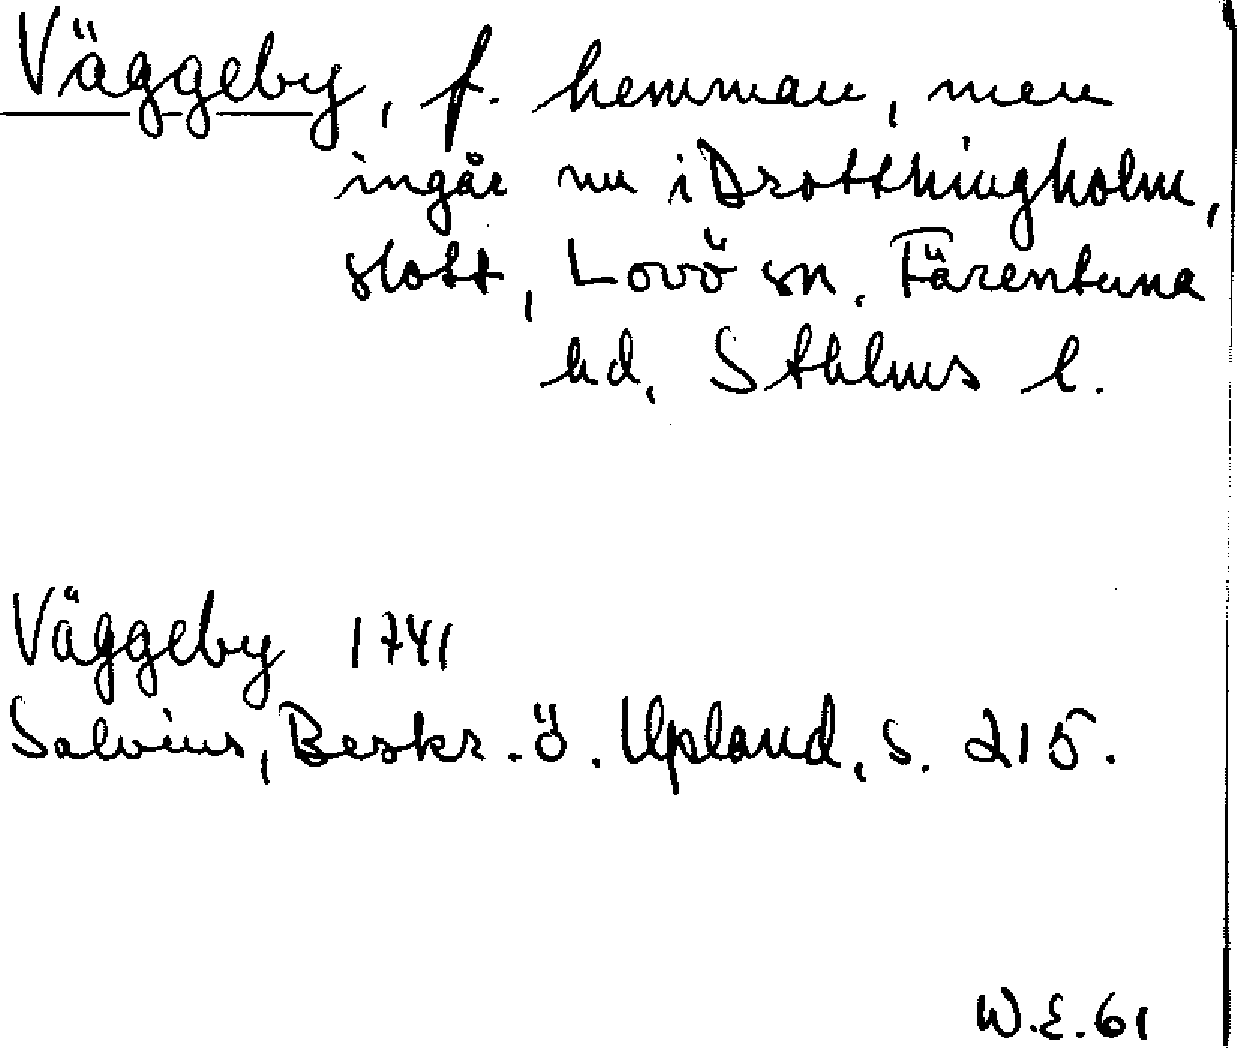 Väggeby, f. hemman, men
ingår nu i Drottningholm,
slott, Lovö sn. Färentuna
hd, Sthlms l.
Väggeby 1741
Salvius, Beskr. ö. Upland, s. 215.
W.E. 61